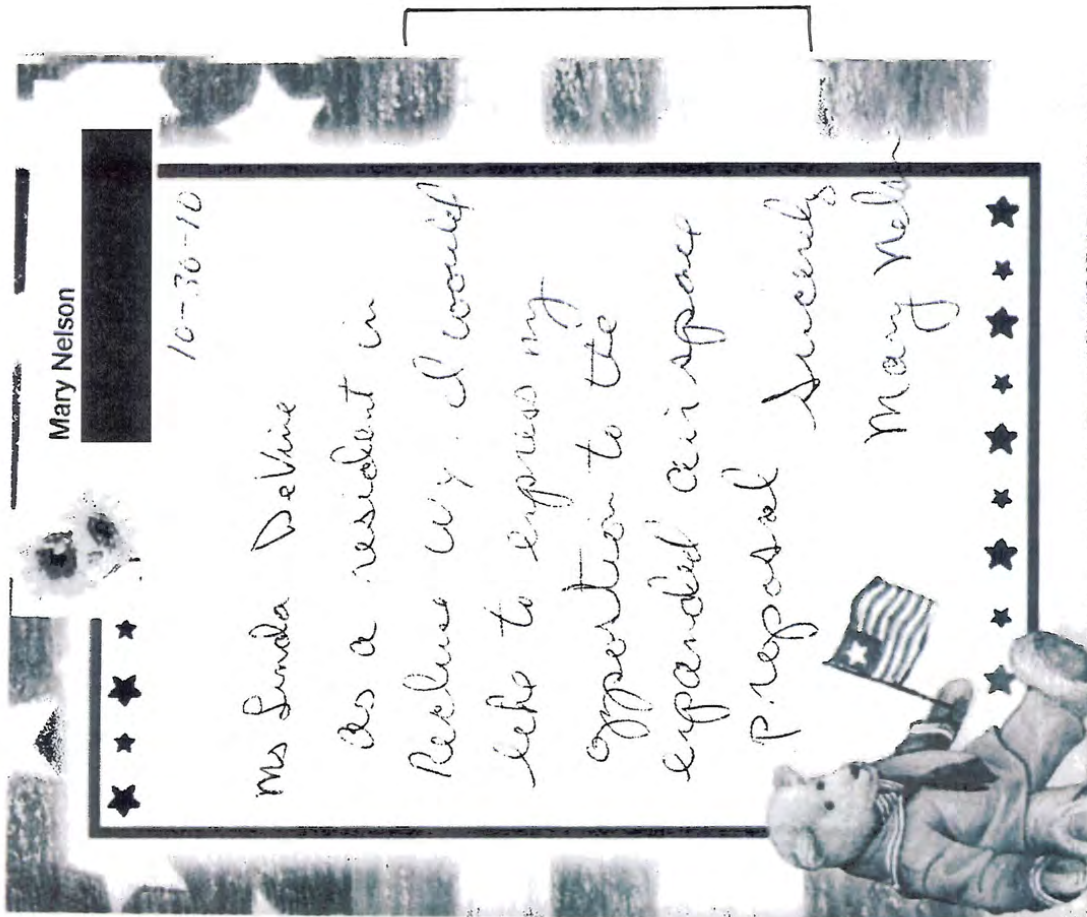 Mary Nelson
10-30-10
Ms Linda DeVine
As a resident in
Recluse Wy. I would
like to express my
opposition to the
expanded air space
proposal
Sincerely
Mary Nelson